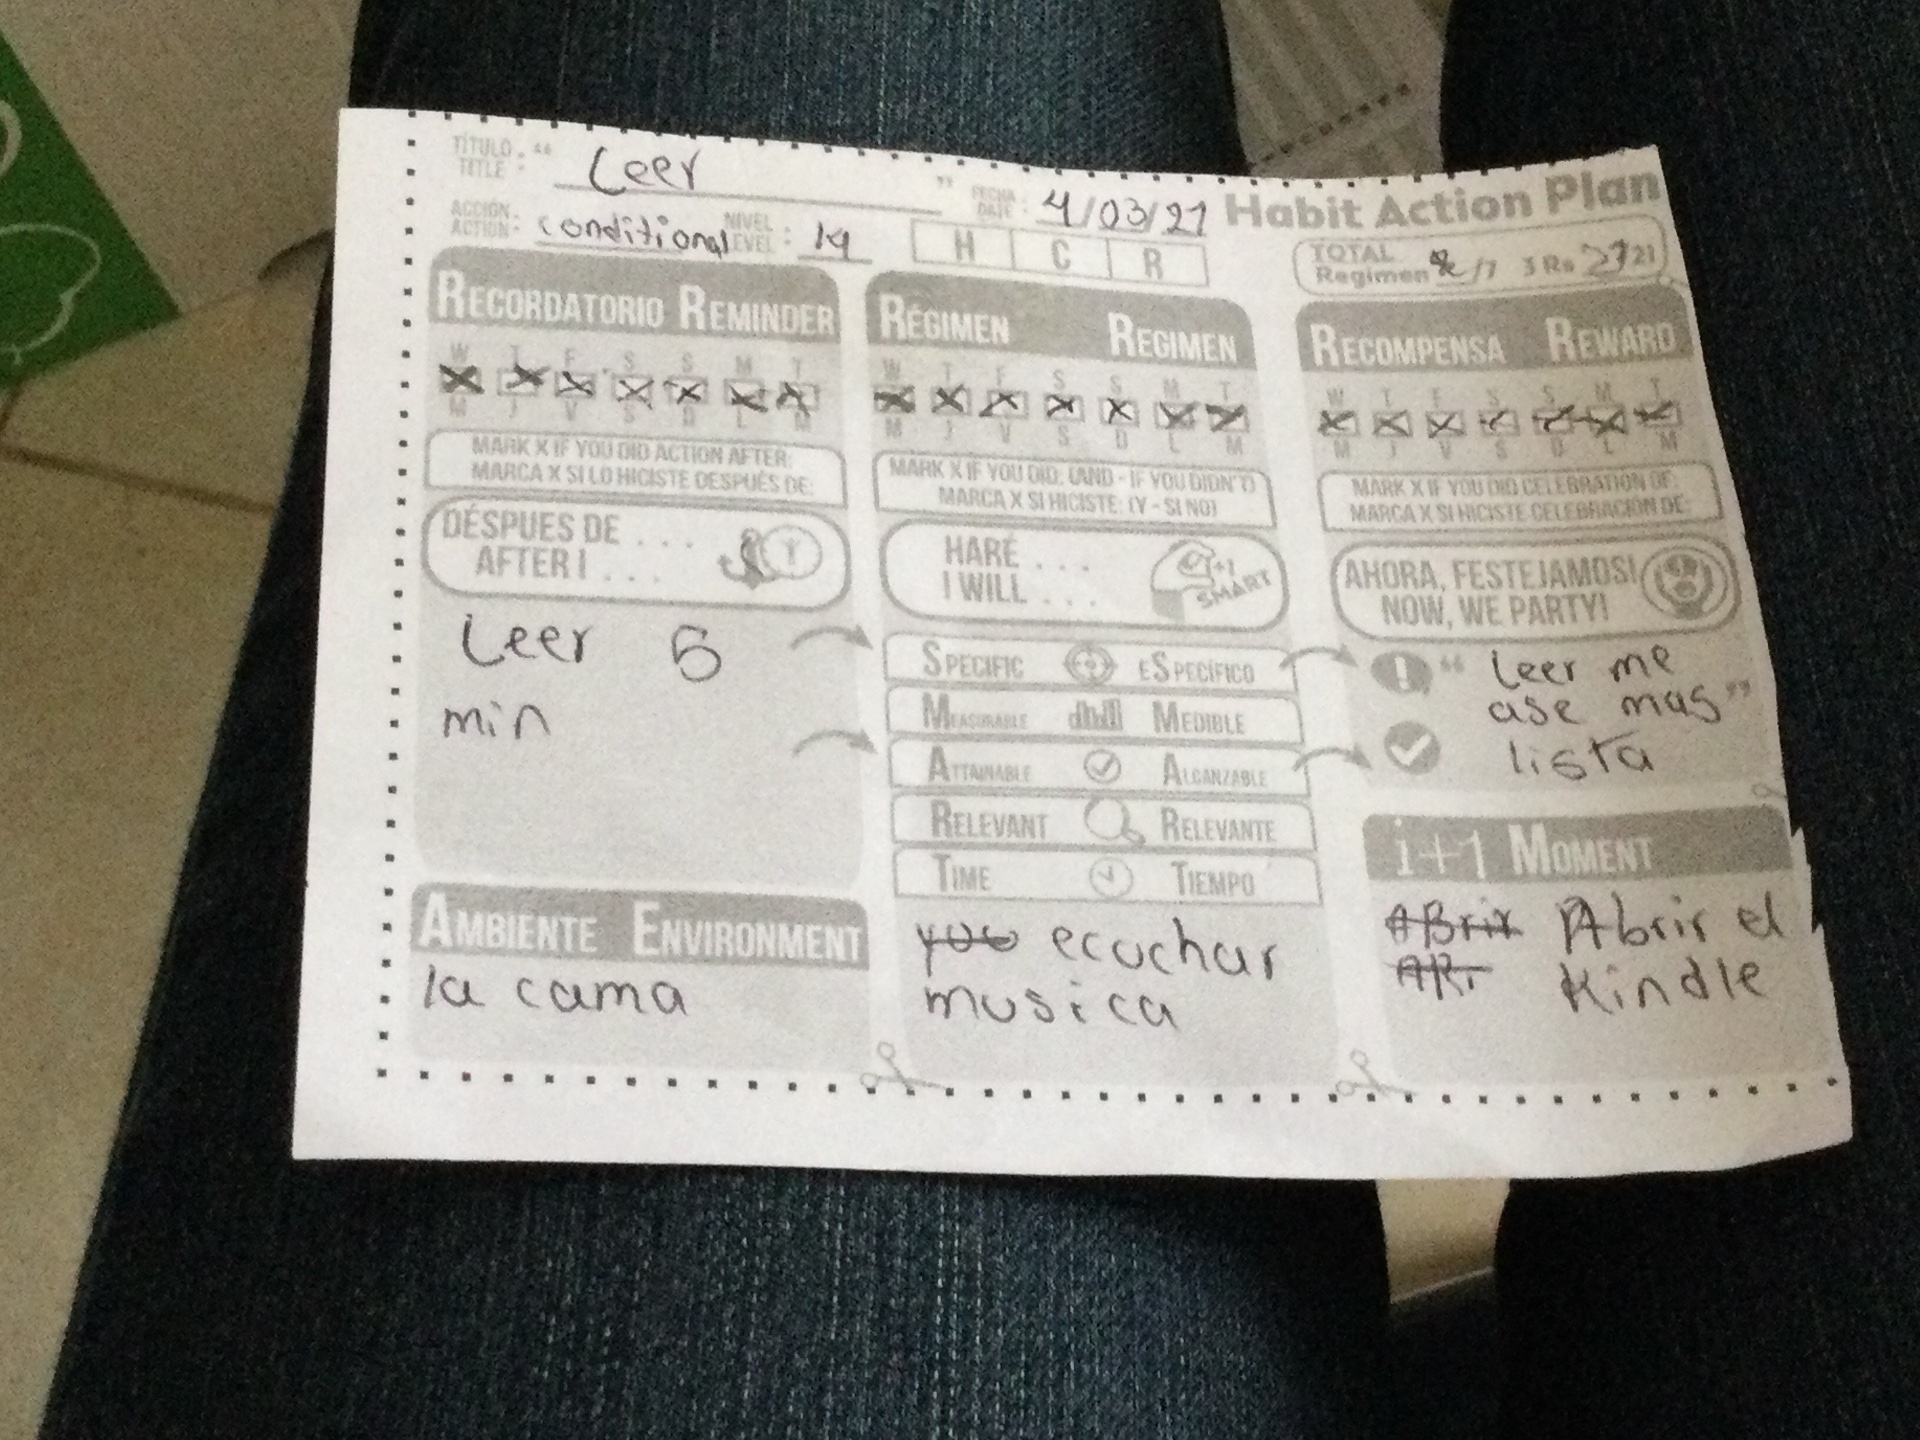 TÍTULO: "
TITLE: Leer "
FECHA:
DATE: 4/03/21
Habit Action Plan
ACCIÓN:
ACTION: conditional
NIVEL
LEVEL: 19
H C R
TOTAL
Regimen /7 3 Rs 21
RECORDATORIO REMINDER
W T F S S M T
M J V S D L M
MARK X IF YOU DID ACTION AFTER:
MARCA X SI LO HICISTE DESPUÉS DE:
DÉSPUES DE . . .
AFTER I . . .
Leer 5
min
AMBIENTE ENVIRONMENT
la cama
RÉGIMEN REGIMEN
W T F S S M T
M J V S D L M
MARK X IF YOU DID: (AND - IF YOU DIDN'T)
MARCA X SI HICISTE: (Y - SI NO)
HARÉ . . .
I WILL . . .
+1
SMART
SPECIFIC ESPECÍFICO
MEASURABLE MEDIBLE
ATTAINABLE ALCANZABLE
RELEVANT RELEVANTE
TIME TIEMPO
ecuchar
musica
RECOMPENSA REWARD
W T F S S M T
M J V S D L M
MARK X IF YOU DID CELEBRATION OF:
MARCA X SI HICISTE CELEBRACION DE:
AHORA, FESTEJAMOS!
NOW, WE PARTY!
" Leer me
ase mas "
lista
i+1 MOMENT
ABrir Abrir el
Kindle